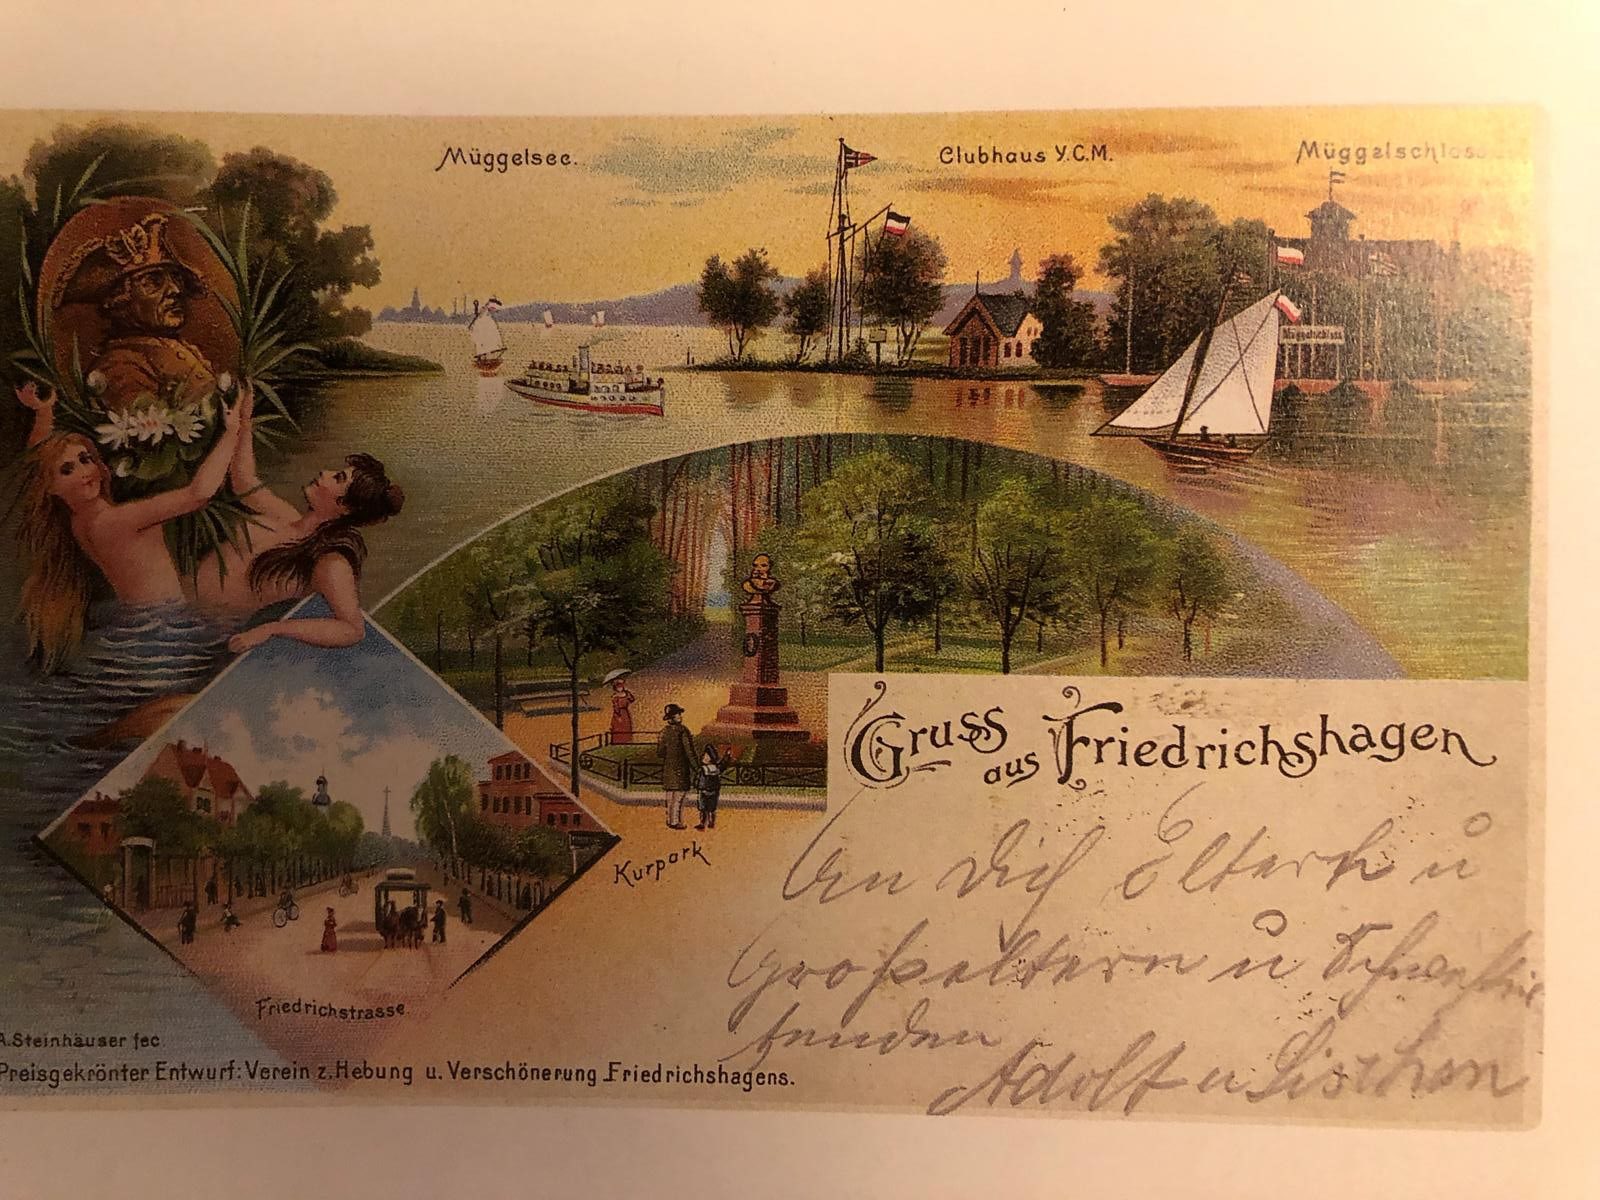 Müggelsee.
Clubhaus Y.C.M.
Müggelschloss
Müggelschloss
Gruss
aus Friedrichshagen
Kurpark
Friedrichstrasse
An Dich Eltern u
Großeltern u
senden
Adolf u Lischen
A. Steinhäuser fec.
Preisgekrönter Entwurf: Verein z. Hebung u. Verschönerung Friedrichshagens.